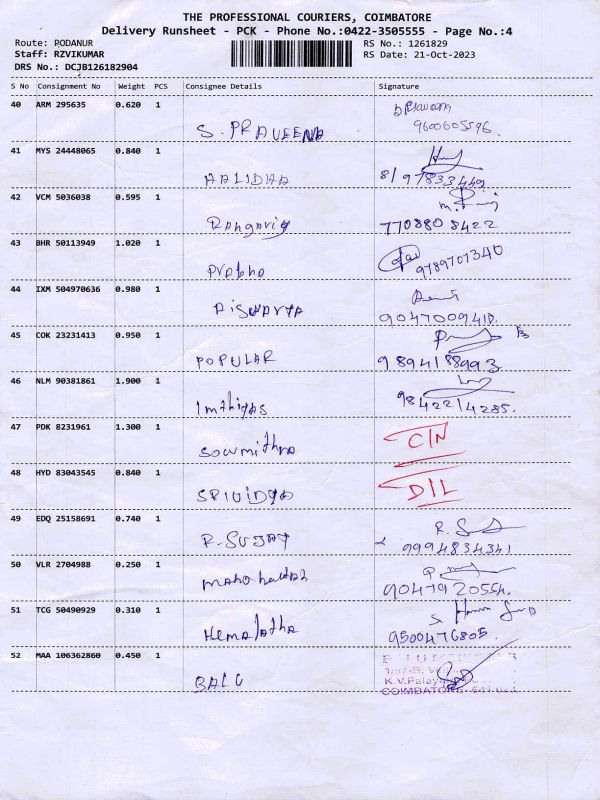 THE PROFESSIONAL COURIERS, COIMBATORE
Delivery Runsheet - PCK - Phone No.:0422-3505555 - Page No.:4
Route: PODANUR
RS No.: 1261829
Staff: RZVIKUMAR
RS Date: 21-Oct-2023
DRS No.: DCJB126182904
S No Consignment No Weight PCS Consignee Details Signature
40 ARM 295635 0.620 1
S. PRAVEENA 9600605596
41 MYS 24448065 0.840 1
8/97833449
42 VCM 5036038 0.595 1
7708808422
43 BHR 50113949 1.020 1
Prabha 9789701340
44 IXM 504970636 0.980 1
AISWARYA 9047009410.
45 COK 23231413 0.950 1
POPULAR 9894188993
46 NLM 90381861 1.900 1
Imthiyas 9842214285.
47 PDK 8231961 1.300 1
Sowmithra C/N
48 HYD 83043545 0.840 1
SRIVIDYA D/L
49 EDQ 25158691 0.740 1
R. SUJAY 9994834341
50 VLR 2704988 0.250 1
9047920554.
51 TCG 50490929 0.310 1
Hemalatha 9500476805.
52 MAA 106362860 0.450 1
BALU
K.V.Palaya
COIMBATORE- 641